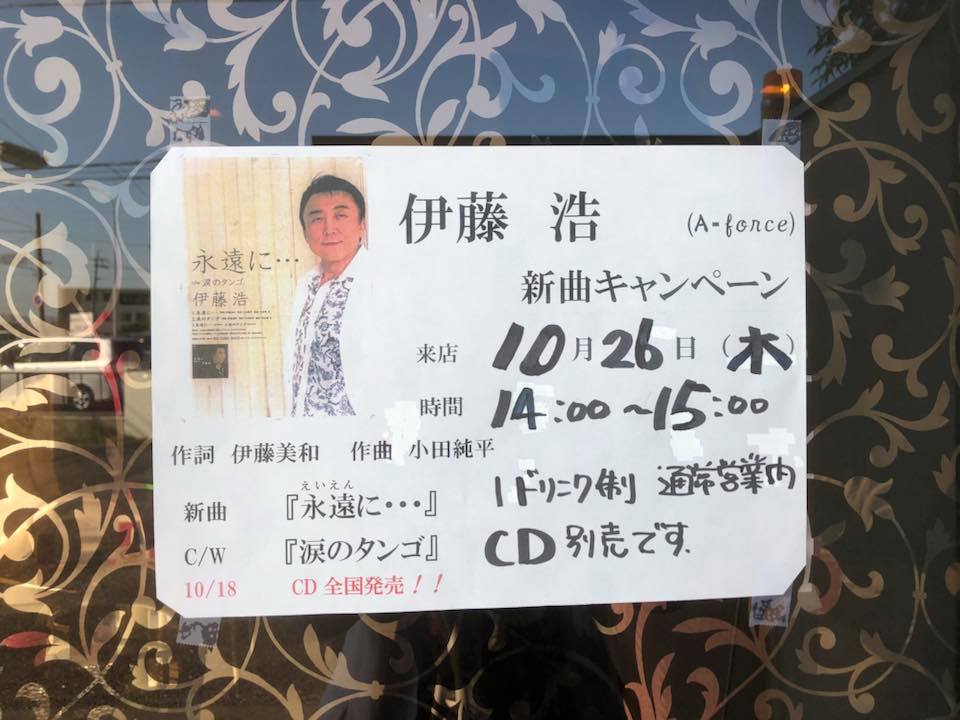 伊藤 浩 (A=force)
新曲キャンペーン
永遠に…
涙のタンゴ
伊藤浩
来店 10月26日(木)
時間 14:00～15:00
作詞 伊藤美和 作曲 小田純平
えいえん
新曲 『永遠に・・・』 1ドリンク制 通常営業内
C/W 『涙のタンゴ』 CD別売です.
10/18 CD全国発売！！